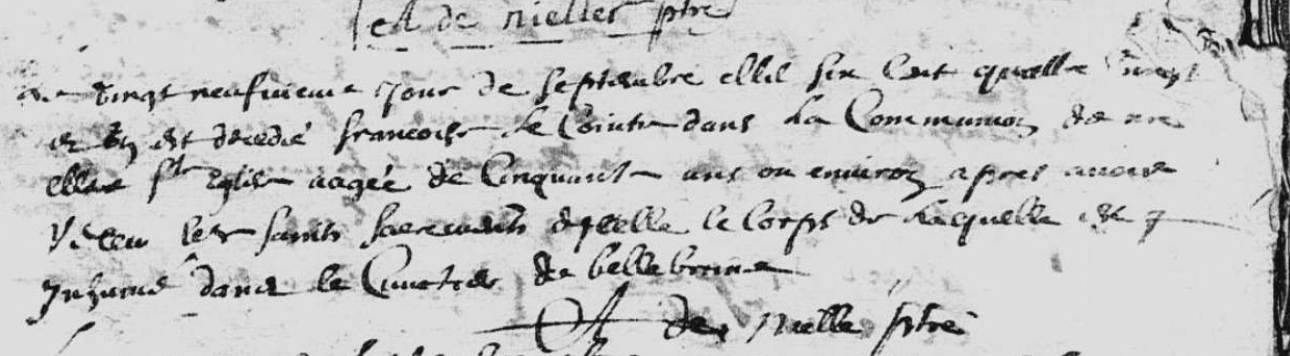 A de nielles ptre
Le vingt neufvieme jour de septembre mil six cent quattre vingt
et un est decedé francoise le Cointe dans la Communion de nre
mere ste Eglise aagée de Cinquante ans ou environ apres avoir
receu les saints sacrements d'icelle le corps de laquelle est
Inhumé dans le Cimetier de bellebrune
A de Nielle ptre